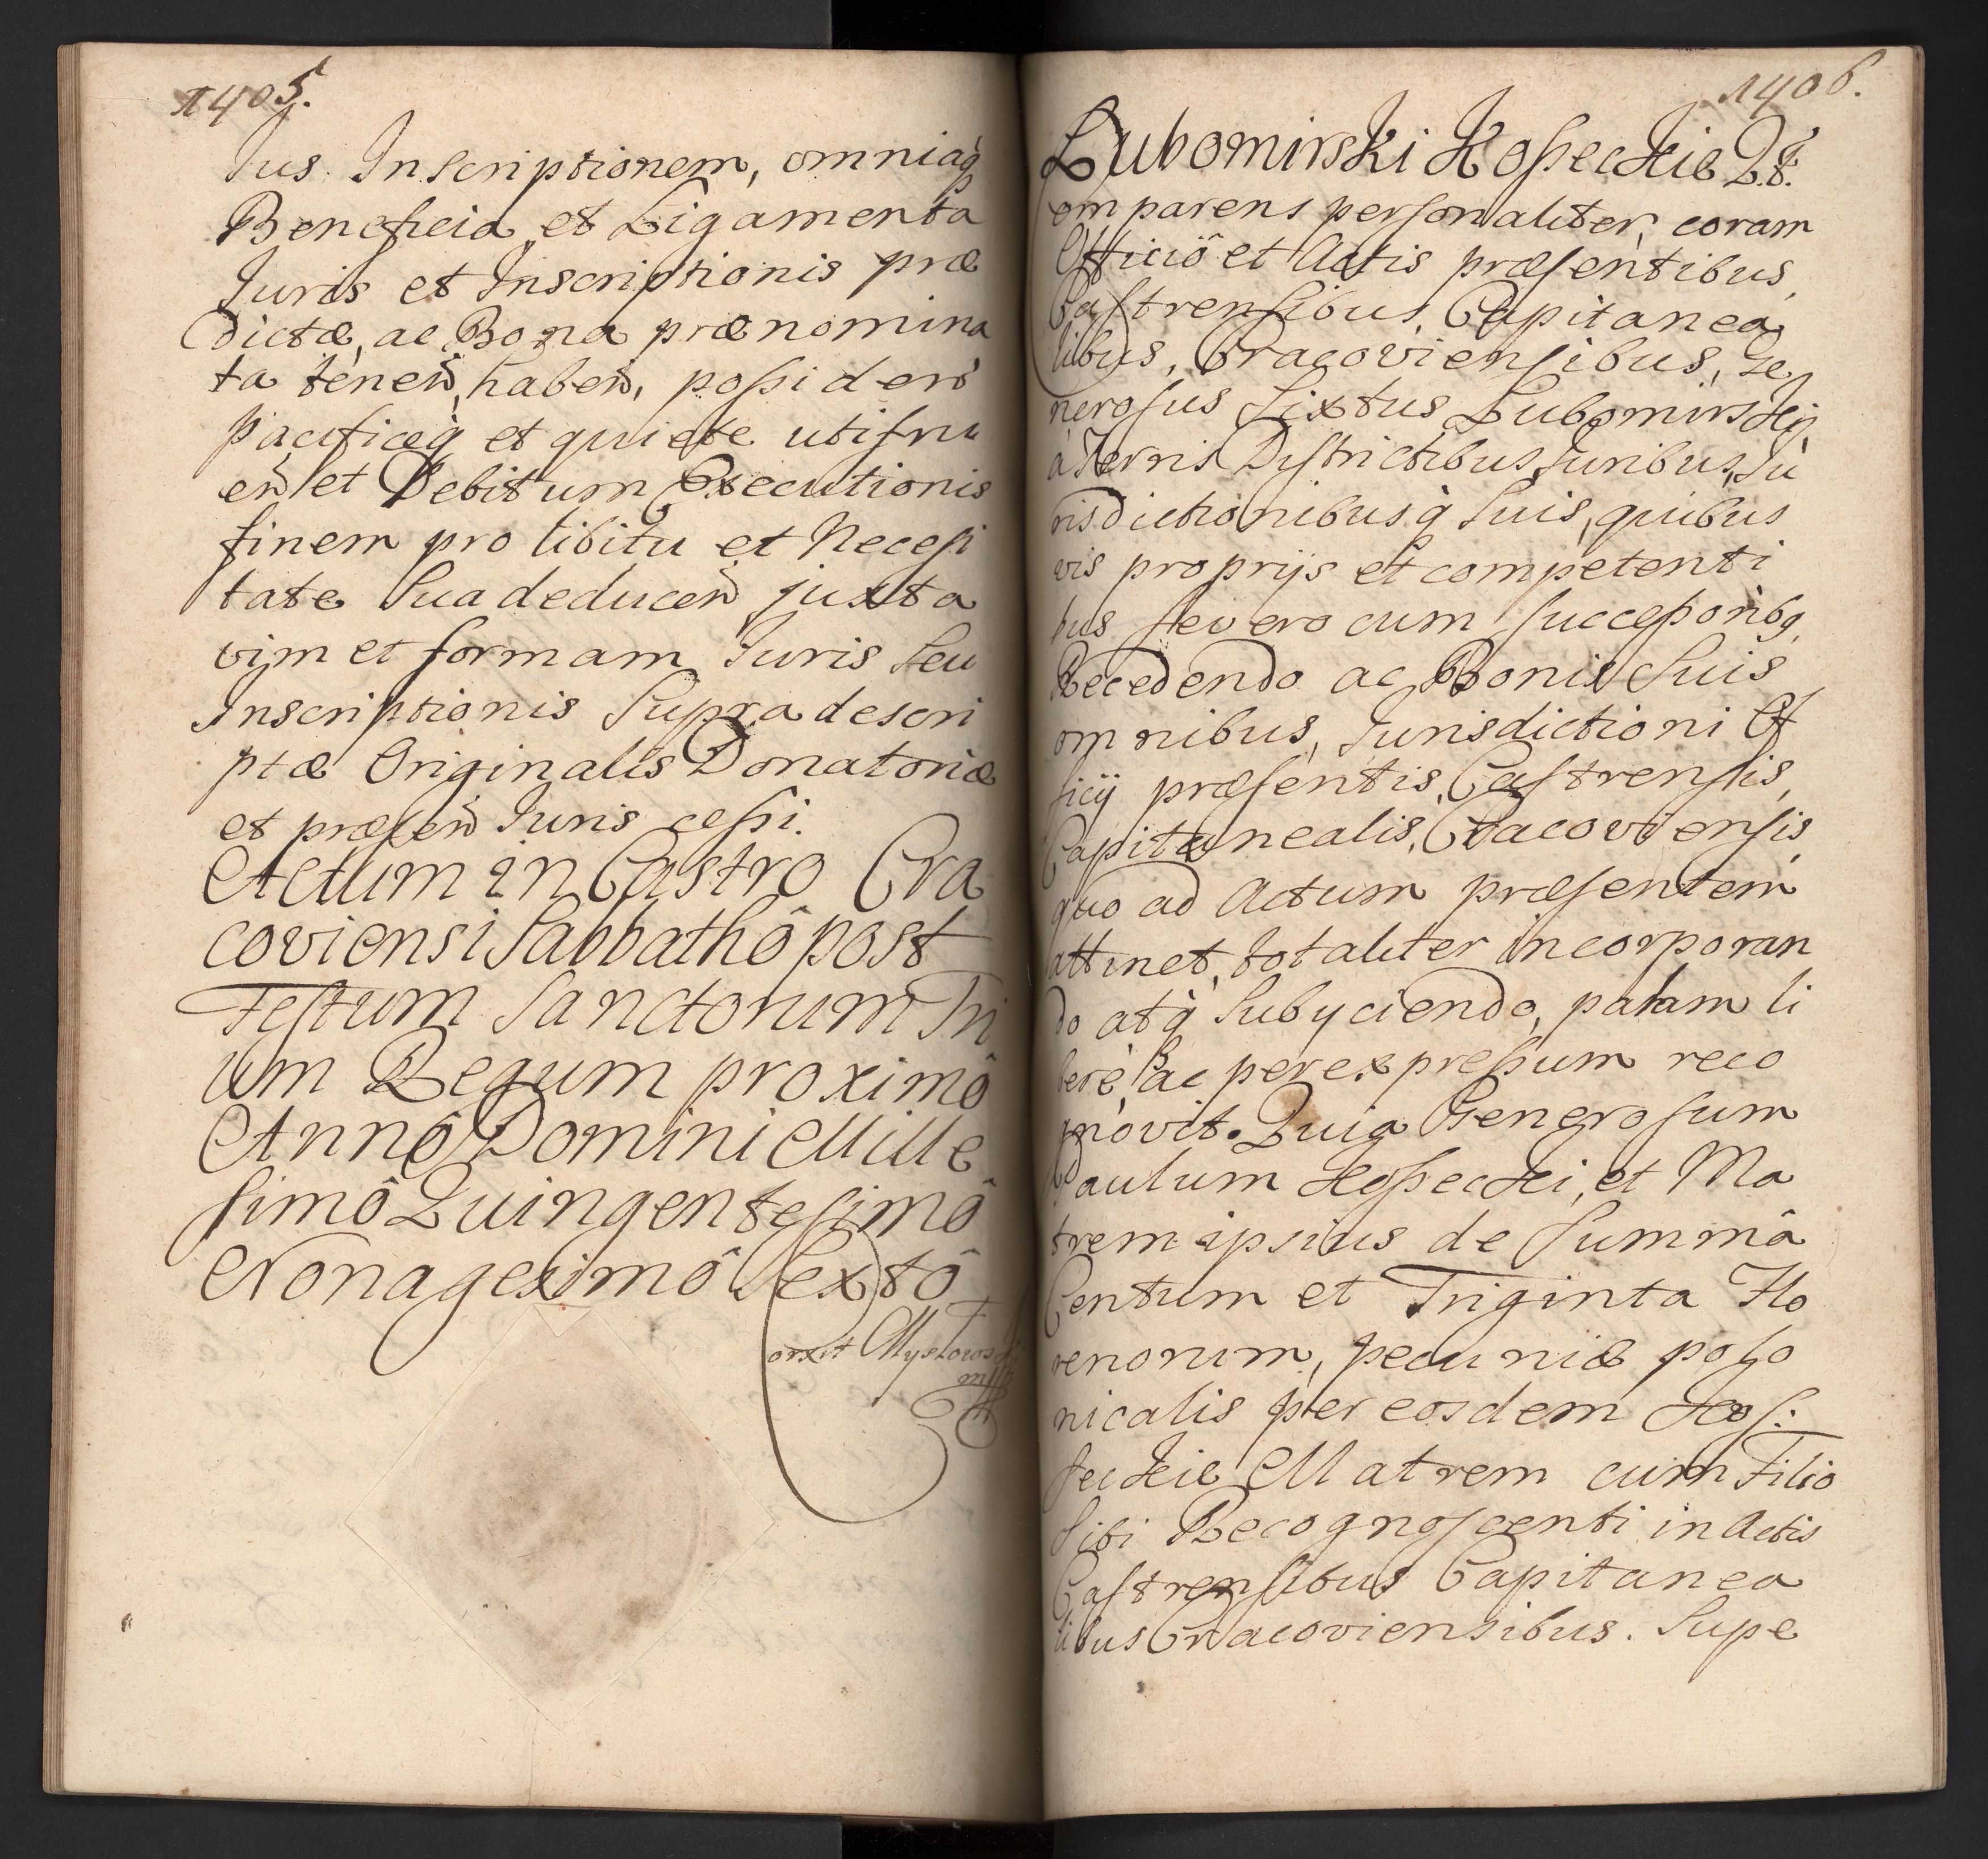 1405.
Jus Inscriptionem, omniaq̀
Beneficia, et Ligamenta
Juris et Inscriptionis præ
dictæ, ac Bona prænomina
ta tenen̄, haben̄, possiden̄
pacificeq̀ et quiete utifru
en̄ et Debitum Executionis
finem pro libitu et Necessi
tate Sua deducen̄ juxta
vim et formam Juris Seu
Inscriptionis Supra descri
ptæ Originalis Donatoriæ
et præsen̄ Juris cessi.
Actum in Castro Cra
coviensi Sabbathô post
Festum Sanctorum Tri
um Regum proximô
Annô Domini Mille
simô Quingentesimô
Nonagesimô Sextô
1406.
Lubomirski Kosseckie Qt.
Comparens personaliter, coram
Officiô et Actis præsentibus,
Castrensibus, Capitanea
libus, Cracoviensibus, Ge
nerosus Sixtus Lubomirskij
a Terris Districtibus Juribus, Ju
risdictionibusq̀ Suis, quibus
vis proprijs et competenti
bus se vero cum Successoribq
Recedendo ac Bonis Suis
omnibus, Jurisdictioni Of
ficij præsentis, Castrensis,
Capitanealis, Cracoviensis,
quo ad Actum præsentem
attinet, totaliter incorporan
do atq̀ Subyciendo, palam li
berè, ac per expressum reco
gnovit. Quia Generosum
Paulum Kossecki, et Ma
trem ipsius de Summâ
Centum et Triginta Flo
renorum, pecuniæ polo
nicalis per eosdem Kos:
seckie Matrem cum Filio
Sibi Recognoscenti in Actis
Castrensibus Capitanea
libus Cracoviensibus. Supe